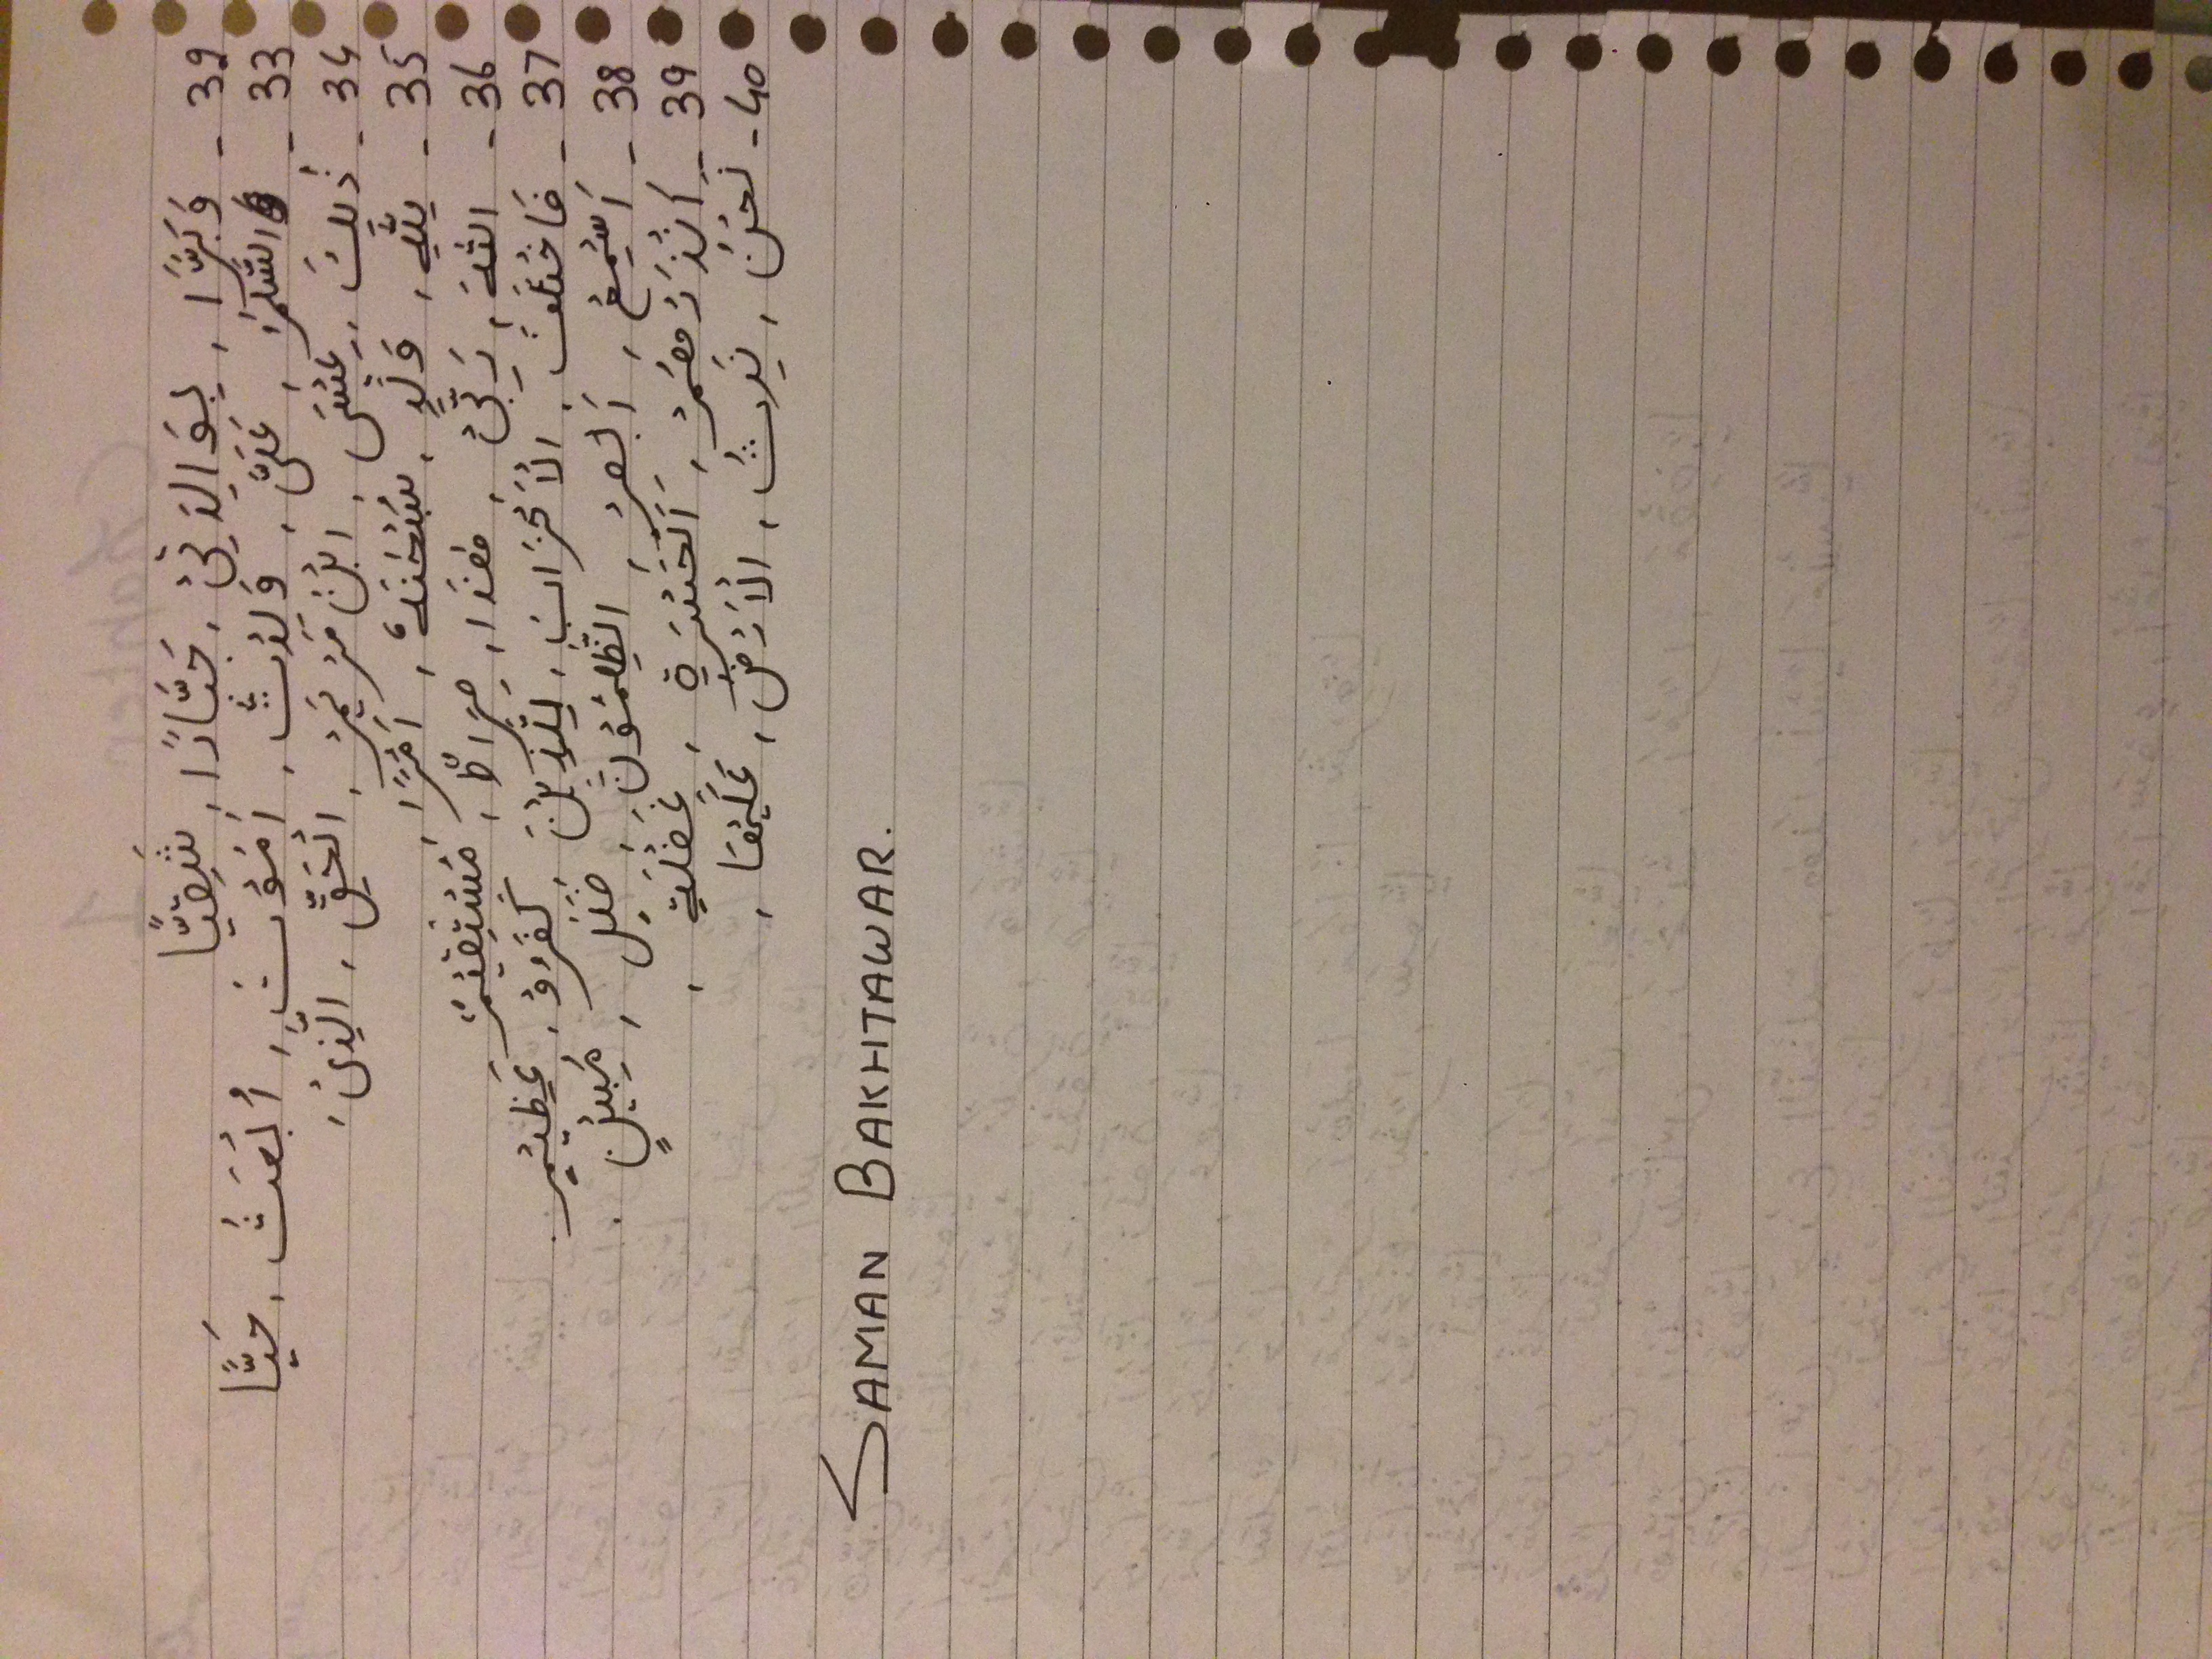 39 - وَبَرًّا ، بِوَالِدَتِىْ ، جَبَّارًا ، شَقِيًّا
33 - وَالسَّلٰمُ ، عَلَىَّ ، وُلِدْتُّ ، اَمُوْتُ ، اُبْعَثُ ، حَيًّا
34 - ذٰلِكَ ، عِيْسَى ، ابْنُ مَرْيَمَ ، الْحَقِّ ، الَّذِىْ ،
35 - لِلّٰهِ ، وَلَدٍ ، سُبْحٰنَهٗ ، اَمْرًا ،
36 - اللّٰهَ ، رَبِّىْ ، هٰذَا ، صِرَاطٌ ، مُسْتَقِيْمٌ
37 - فَاخْتَلَفَ ، الْاَحْزَابُ ، لِلَّذِيْنَ ، كَفَرُوْ ، عَظِيْمٍ .
38 - اَسْمِعْ ، اَبْصِرْ ، الظّٰلِمُوْنَ ، ضَلٰلٍ ، مُّبِيْنٍ .
39 - اَنْذِرْهُمْ ، الْحَسْرَةِ ، غَفْلَةٍ ،
40 - نَحْنُ ، نَرِثُ ، الْاَرْضَ ، عَلَيْهَا ،
SAMAN BAKHTAWAR.